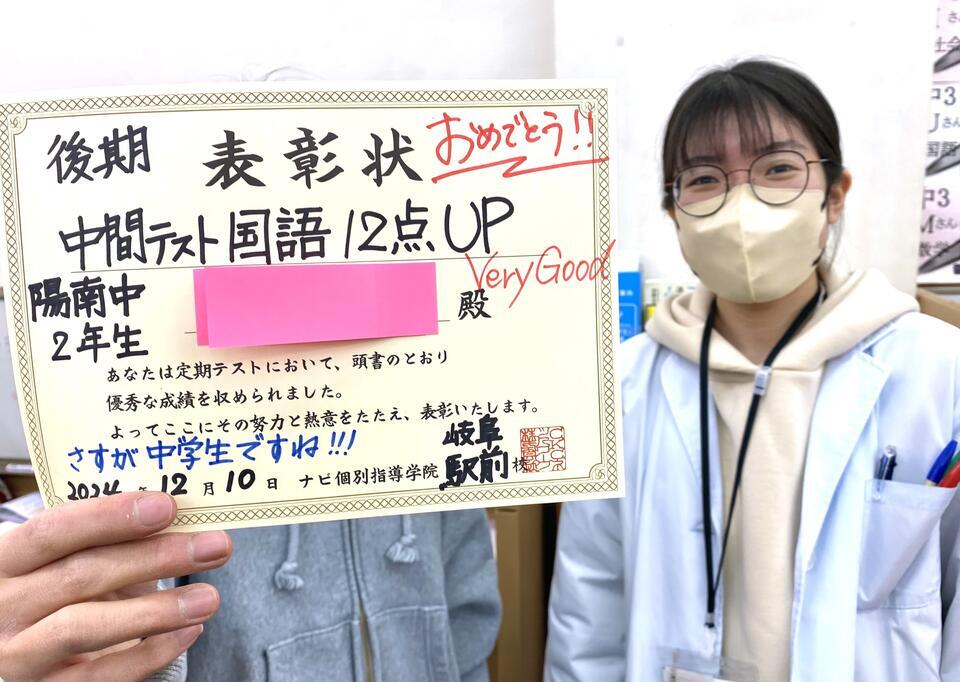 後期 表彰状 おめでとう!!
中間テスト国語12点UP
Very Good
陽南中
2年生
殿
あなたは定期テストにおいて、頭書のとおり
優秀な成績を収められました。
よってここにその努力と熱意をたたえ、表彰いたします。
さすが中学生ですね!!!
岐阜
2024年12月10日 ナビ個別指導学院 駅前校
さん
社会
中3
Jさん
国語
中3
Mさん
数学